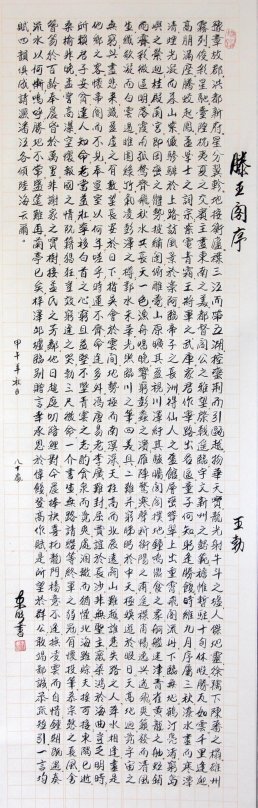 滕王閣序
王勃
豫章故郡洪都新府星分翼軫地接衡廬襟三江而帶五湖控蠻荊而引甌越物華天寶龍光射斗牛之墟人傑地靈徐孺下陳蕃之榻雄州
霧列俊彩星馳臺隍枕夷夏之交賓主盡東南之美都督閻公之雅望棨戟遙臨宇文新州之懿範襜帷暫駐十旬休暇勝友如雲千里逢迎
高朋滿座騰蛟起鳳孟學士之詞宗紫電青霜王將軍之武庫家君作宰路出名區童子何知躬逢勝餞時維九月序屬三秋潦水盡而寒潭
清煙光凝而暮山紫儼驂騑於上路訪風景於崇阿臨帝子之長洲得仙人之舊館層巒聳翠上出重霄飛閣流丹下臨無地鶴汀鳧渚窮島
嶼之縈迴桂殿蘭宮即岡巒之體勢披繡闥俯雕甍山原曠其盈視川澤紆其駭矚閭閻撲地鐘鳴鼎食之家舸艦迷津青雀黃龍之舳虹銷
雨霽彩徹區明落霞與孤鶩齊飛秋水共長天一色漁舟唱晚響窮彭蠡之濱雁陣驚寒聲斷衡陽之浦遙襟甫暢逸興遄飛爽籟發而清風
生纖歌凝而白雲遏睢園綠竹氣凌彭澤之樽鄴水朱華光照臨川之筆四美具二難并窮睇眄於中天極娛遊於暇日天高地迥覺宇宙之
無窮興盡悲來識盈虛之有數望長安於日下指吳會於雲間地勢極而南溟深天柱高而北辰遠關山難越誰悲失路之人萍水相逢盡是
他鄉之客懷帝閽而不見奉宣室以何年嗟乎時運不齊命途多舛馮唐易老李廣難封屈賈誼於長沙非無聖主竄梁鴻於海曲豈乏明時
所賴君子安貧達人知命老當益壯寧移白首之心窮且益堅不墜青雲之志酌貪泉而覺爽處涸轍而猶懽北海雖賒扶搖可接東隅已逝
桑榆非晚孟嘗高潔空懷報國之情阮籍猖狂豈效窮途之哭勃三尺微命一介書生無路請纓等終軍之弱冠有懷投筆慕宗愨之長風舍
簪笏於百齡奉晨昏於萬里非謝家之寶樹接孟氏之芳鄰他日趨庭叨陪鯉對今晨捧袂喜托龍門楊意不逢撫凌雲而自惜鍾期既遇奏
流水以何慚嗚呼勝地不常盛筵難再蘭亭已矣梓澤丘墟臨別贈言幸承恩於偉餞登高作賦是所望於群公敢竭鄙誠恭疏短引一言均
賦四韻俱成請灑潘江各傾陸海云爾
甲午年秋日 八十歲